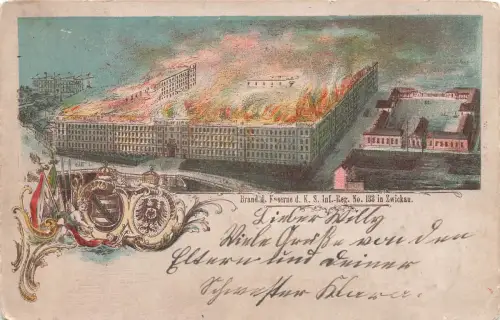 Brand d. Kaserne d. K. S. Inf.-Reg. No. 133 in Zwickau.
Lieber Willy
Viele Grüße von den
Eltern und deiner
Schwester Klara.